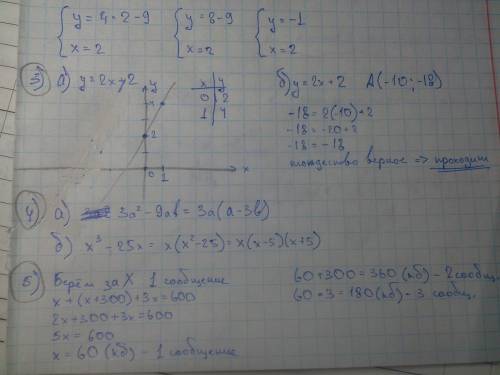 { y = 4 · 2 - 9 { y = 8 - 9 { y = -1
{ x = 2 { x = 2 { x = 2
3) а) y = 2x + 2
y
x | y
0 | 2
1 | 4
4
2
0 1 x
б) y = 2x + 2 A(-10; -18)
-18 = 2(-10) + 2
-18 = -20 + 2
-18 = -18
тождество верное => проходит
4) а) 3a² - 9ab = 3a(a - 3b)
б) x³ - 25x = x(x² - 25) = x(x-5)(x+5)
5) Берём за X 1 сообщение
x + (x+300) + 3x = 600
2x + 300 + 3x = 600
5x = 600
x = 60 (кб) - 1 сообщение
60 + 300 = 360 (кб) - 2 сообщ.
60 · 3 = 180 (кб) - 3 сообщ.